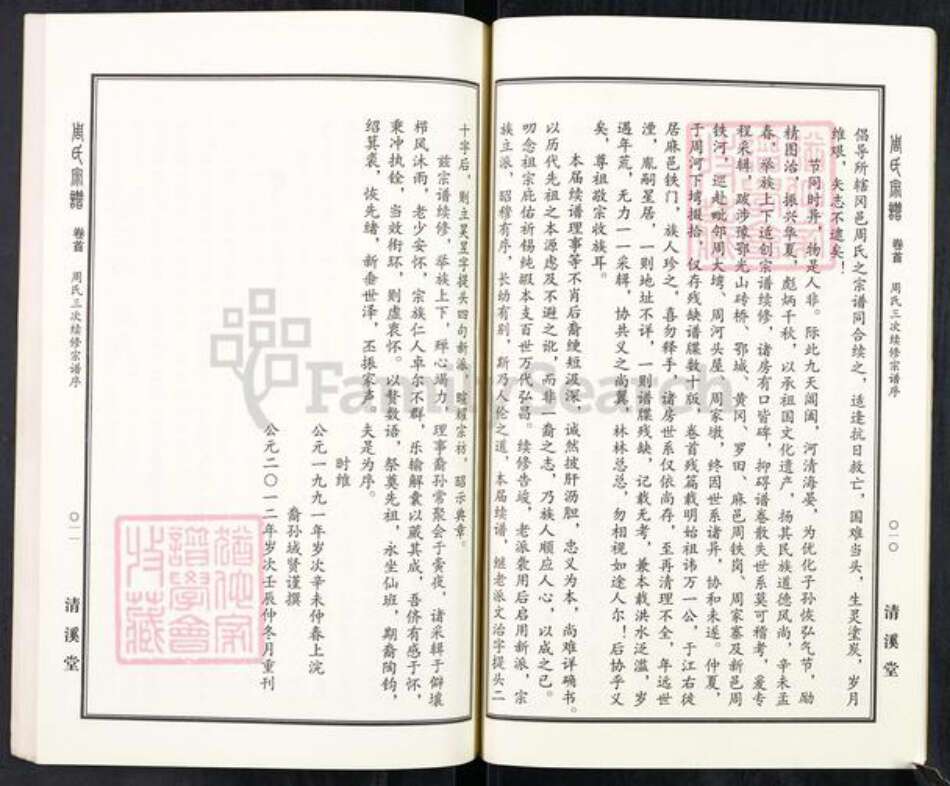 周氏宗譜
卷首
周氏三次续修宗谱序
〇一〇
清溪堂
倡导所辖冈邑周氏之宗谱同合续之，适逢抗日救亡，国难当头，生灵塗炭，岁月
维艰，矢志不逮矣！
节同时异，物是人非。际此九天阊阖，河清海晏，为优化子孙恢弘气节，励
精图治，振兴华夏，彪炳千秋，以承祖国文化遗产，扬其民族道德风尚，辛未孟
春，举族上下适创宗谱续修，诸房有口皆碑，抑碍谱卷散失世系莫可稽考，爰专
程采辑，跋涉豫鄂光山砖桥、鄂城、黄冈、罗田、麻邑周铁岗、周家寨及新邑周
铁河，巡赴毗邻周大塆、周河头屋、周家墩，终因世系诸异，协和未遂。仲夏，
于周河下塆报拾，仅存残缺谱牒数十版，卷首残篇载明始祖讳万一公，于江右徙
居麻邑铁门，族人珍之，喜勿释手，诸房世系仅依尚存，至再清理不全，年远世
湮，胤嗣星居，一则地址不详，一则谱牒残缺，记载无考，兼本载洪水泛滥，岁
遇年荒，无力一一采辑，协共义之尚冀，林林总总，勿相视如途人尔！后协乎义
矣，尊祖敬宗收族耳。
本届续谱理事等不肖后裔绠短汲深，诚然披肝沥胆，忠义为本，尚难详确书。
以历代先祖之本源虑及不避之讹，而非一裔之志，乃族人顺应人心，以成之已。
叨念祖宗庇佑祈锡纯嘏本支百世万代弘昌。续修告竣，老派彙用后启用新派，宗
族立派，昭穆有序，长幼有别，斯乃人伦之道，本届续谱，继老派文治字提头二
十字后，则立昊呈字提头四句新派，暄耀宗祊，昭示典章。
兹宗谱续修，举族上下，殚心竭力，理事裔孙常聚会于霄夜，诸采辑于僻壤
栉风沐雨，老少安怀，宗族仁人卓尔不群，乐输解囊以蒇其成，吾侪有感于怀，
秉冲执铨，当效衔环，则虚衷怀。以赘数语，祭奠先祖，永坐仙班，期裔陶钧，
绍箕裘，恢先绪，新垂世泽，丕振家声，夫是为序。
时维
公元一九九一年岁次辛未仲春上浣
裔孙城贤谨撰
公元二〇一二年岁次壬辰仲冬月重刊
周氏宗譜
卷首
周氏三次续修宗谱序
〇一一
清溪堂
FamilySearch